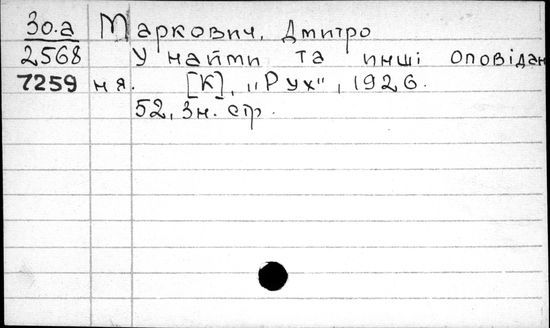 Зо.а Маркович, Дмитро
2568 У найми та инші оповідан
7259 ня. [К], "Рух", 1926.
52, 3н. стр.